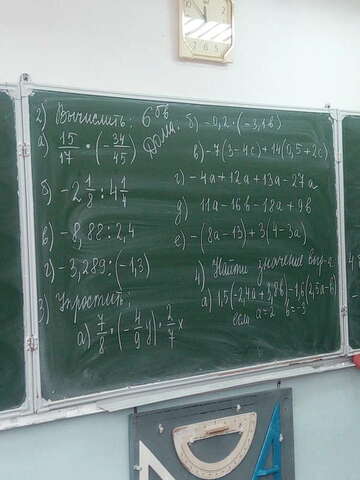 2) Вычислить: 6 бв
Дома.
а) 15/17 · (-34/45)
б) -2 1/8 : 4 1/4
в) -8,88 : 2,4
г) -3,289 : (-1,3)
3) Упростить:
а) 7/8 · (-4/9 y) · 2/7 x
б) -0,2 · (-3,1b)
в) -7(3-4c)+14(0,5+2c)
г) -4a+12a+13a-27a
д) 11a-16b-18a+9b
е) -(8a-13)+3(4-3a)
4) Найти значение выр-я
а) 1,5(-2,4a+3,8b)-1,6(2,5a-b)
если a=2 b=-3
4,8